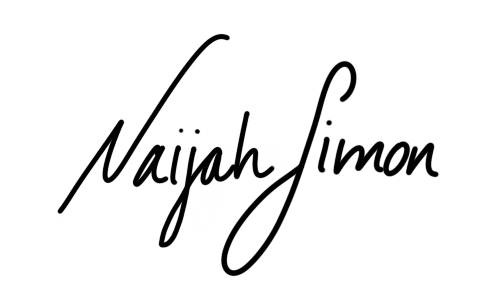 Naijah Simon